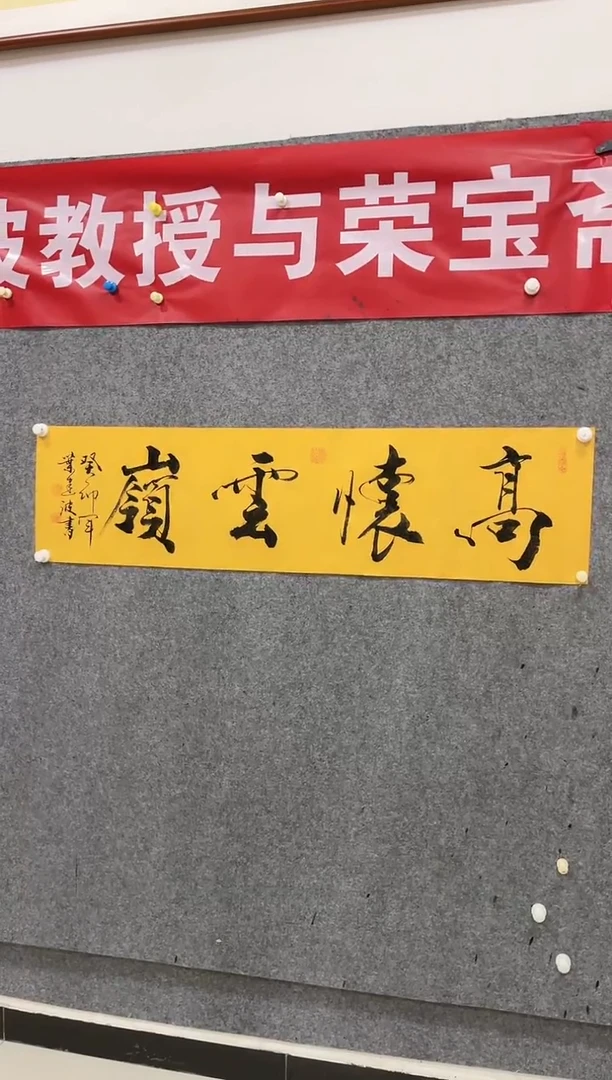 波教授与荣宝斋
高懷雲嶺
癸卯年
葉建波書